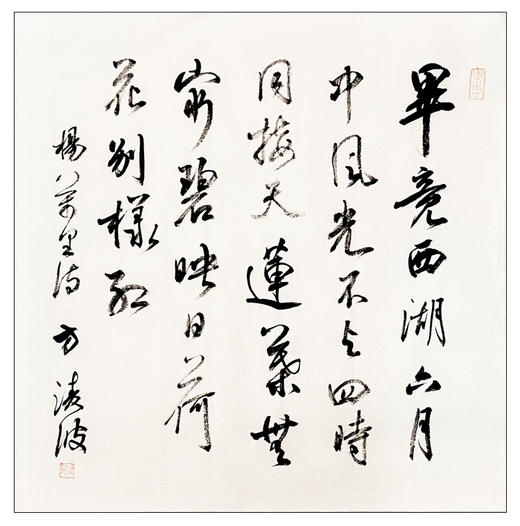 畢竟西湖六月
中風光不与四時
同接天蓮葉無
窮碧映日荷
花別樣紅
楊萬里詩 方凌波